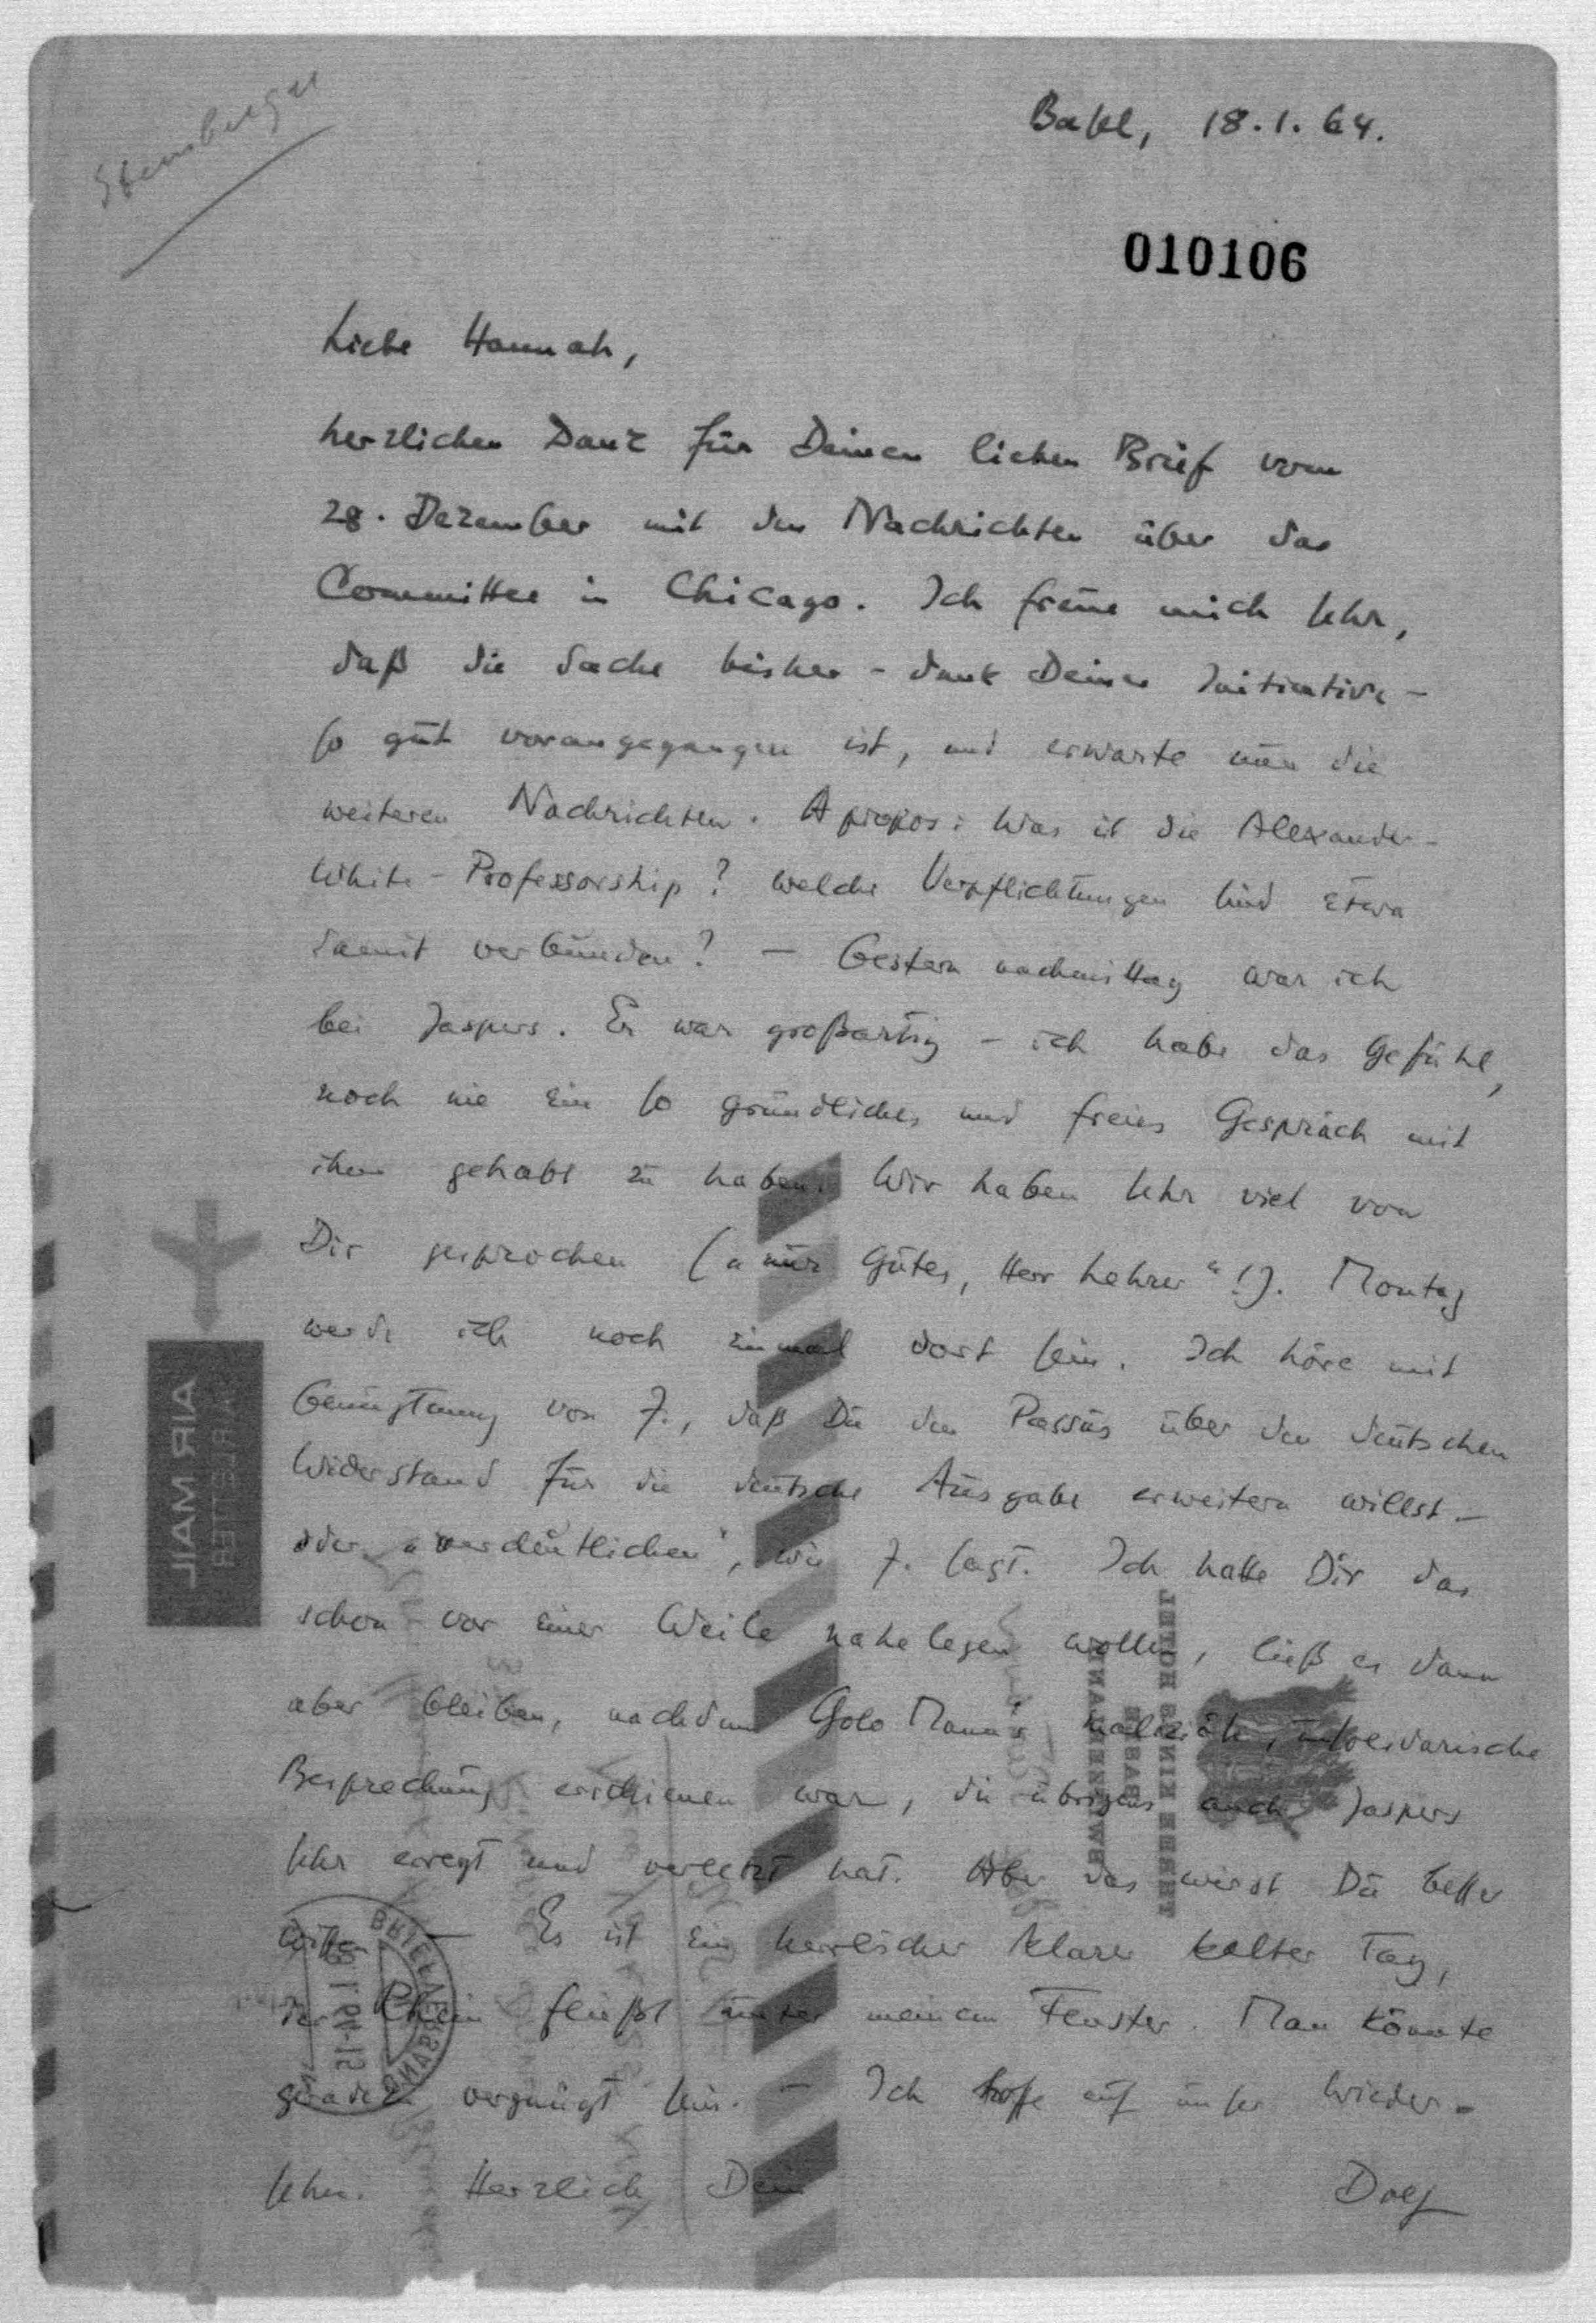 Sternberger
Basel, 18.1.64.
010106
Liebe Hannah,
herzlichen Dank für Deinen lieben Brief vom
28. Dezember mit den Nachrichten über das
Committee in Chicago. Ich freue mich sehr,
daß die Sache bisher - dank Deiner Initiative -
so gut vorangegangen ist, und erwarte nun die
weiteren Nachrichten. Apropos: Was ist die Alexander-
White-Professorship? Welche Verpflichtungen sind etwa
damit verbunden? - Gestern nachmittag war ich
bei Jaspers. Er war großartig - ich habe das Gefühl,
noch nie ein so gründliches und freies Gespräch mit
ihm gehabt zu haben. Wir haben sehr viel von
Dir gesprochen („nur Gutes, Herr Lehrer“!). Montag
werde ich noch einmal dort sein. Ich höre mit
Genugtuung von J., daß Du den Passus über den deutschen
Widerstand für die deutsche Ausgabe erweitern willst -
oder „verdeutlichen“, wie J. sagt. Ich hatte Dir das
schon vor einer Weile nahelegen wollen, ließ es dann
aber bleiben, nachdem Golo Mann's
Besprechung erschienen war, die übrigens auch Jaspers
sehr erregt und verletzt hat. Aber das wirst Du besser
wissen. - Es ist ein herrlicher klarer kalter Tag,
der Rhein fließt unter meinem Fenster. Man könnte
geradezu vergnügt sein. - Ich hoffe auf unser Wieder-
sehen. Herzlich Dein Dolf
AIR MAIL
AEROLETTER
BRIEFVERSAND